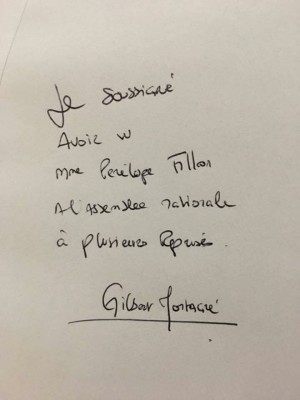 Je soussigné
Avoir vu
Mme Penelope Fillon
A l'Assemblée nationale
à plusieurs reprises.
Gilbert Montagné